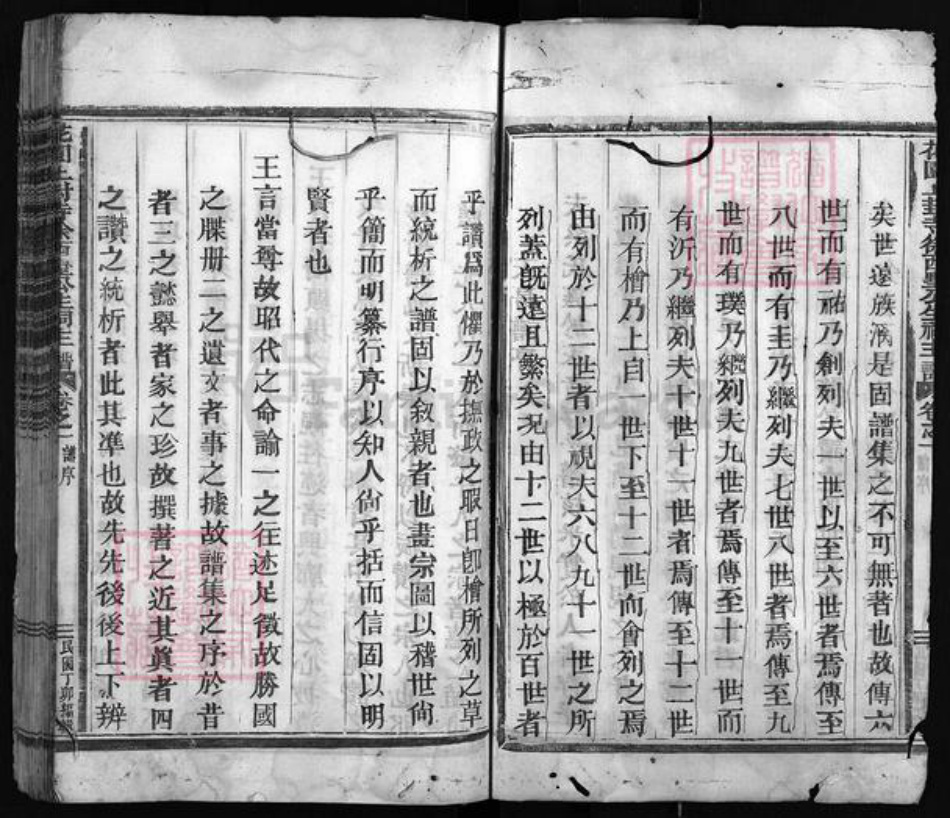 矣世遠族渙是固譜集之不可無著也故傳六
世而有祐乃創列夫一世以至六世者焉傳至
八世而有圭乃繼列夫七世八世者焉傳至九
世而有璞乃繼列夫九世者焉傳至十一世而
有沂乃繼列夫十世十一世者焉傳至十二世
而有檜乃上自一世下至十二世而會列之焉
由列於十二世者以視夫六八九十一世之所
列蓋旣遠且繁矣況由十二世以極於百世者
乎讚爲此懼乃於撫政之暇日卽檜所列之草
而統析之譜固以叙親者也畫宗圖以稽世尙
乎簡而明纂行序以知人尙乎括而信固以明
賢者也
王言當尊故昭代之命諭一之往述足徵故勝國
之牒册二之遺文者事之據故譜集之序於昔
者三之懿舉者家之珍故撰著之近其眞者四
之讚之統析者此其準也故先先後後上下辨
卷之一 譜序
民國丁卯